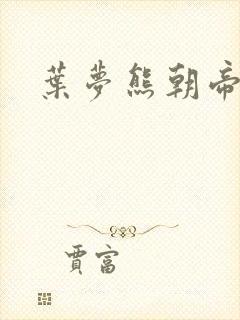 葉夢熊朝帝
賈富